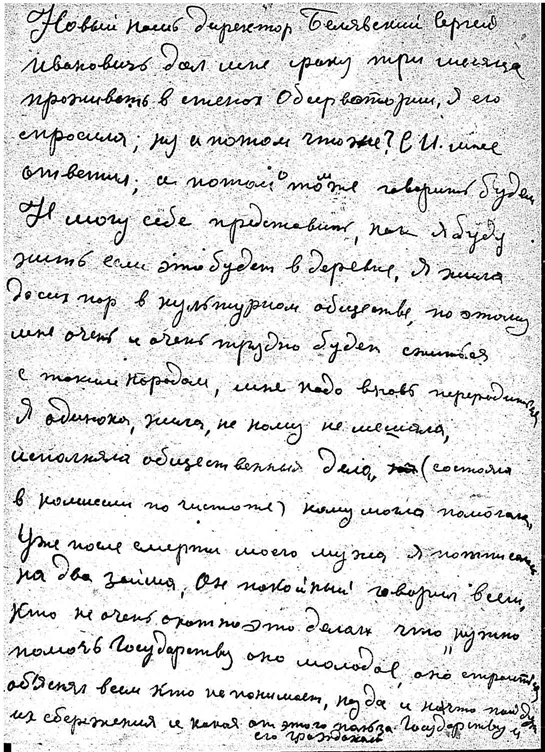 Новый нашь директор Белявский Сергей
Ивановичь дал мне сроку три месяца
проживать в стенах Обсерватории, я его
спросила; ну а потом что же? С. И. мне
ответил; а потом тоже говорить будем
Не могу себе представить, как я буду
жить если это будет в деревне, я жила
до сих пор в культурном обществе, по этому
мне очень и очень трудно будет сжиться
с таким народом, мне надо вновь переродиться
Я одинока, жила, не кому не мешала,
исполняла общественныя дела, (состояла
в комисии по чистоте) кому могла помогала,
Уже после смерти моего мужа я подписалась
на два займа, Он покойный говорил всем,
кто не очень охотно это делал что нужно
помочь Государству оно молодое, оно строится,
объяснял всем кто не понимает, куда и на что пойдут
их сбережения и какая от этого польза Государству и
его гражданам